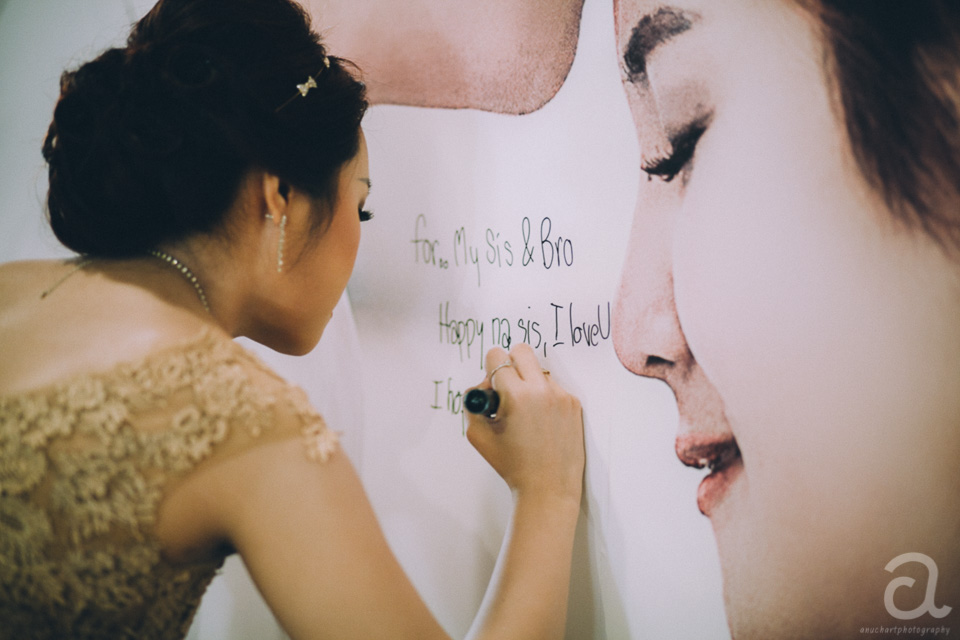 for.. My Sis & Bro
Happy na sis, I love U
I ho
a
anuchartphotography